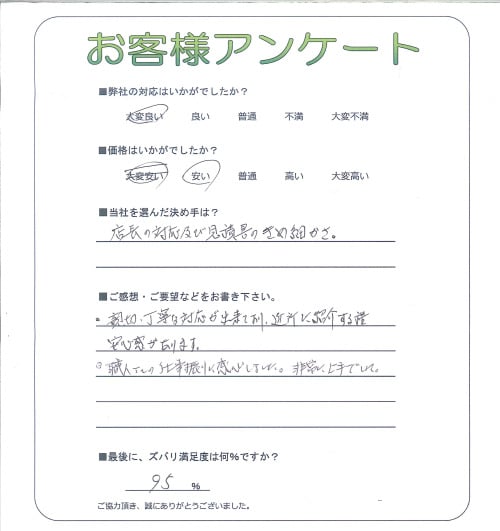 お客様アンケート
■弊社の対応はいかがでしたか？
大変良い 良い 普通 不満 大変不満
■価格はいかがでしたか？
大変安い 安い 普通 高い 大変高い
■当社を選んだ決め手は？
店長の対応及び見積書のきめ細かさ。
■ご感想・ご要望などをお書き下さい。
親切、丁寧な対応が出来ており、近所に紹介する程
安心感があります。
職人さんの仕事振りに感心しました。非常に上手でした。
■最後に、ズバリ満足度は何％ですか？
95 ％
ご協力頂き、誠にありがとうございました。